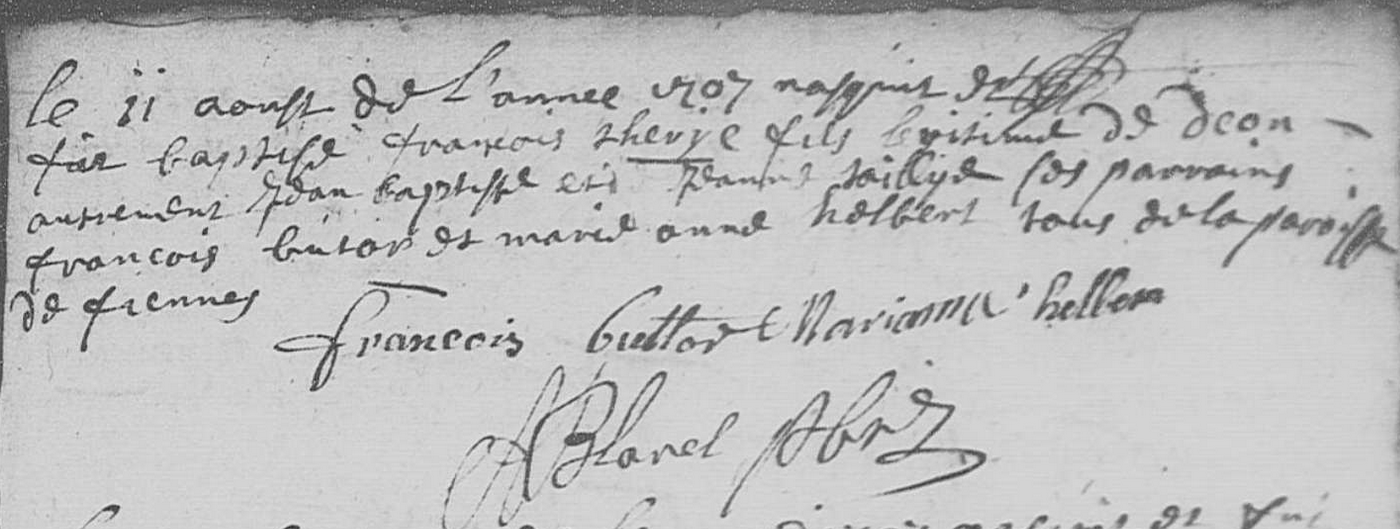 le 11 aoust de l'annee 1707 nasquit et
fut baptisé françois therye fils legitime de deon
autrement Jean baptiste et Jeanne taillye ses parrains
francois butor et marie anne helbert tous de la paroisse
de fiennes
francois buttor Marianne helber
Blarel pbre
nasquit et fut